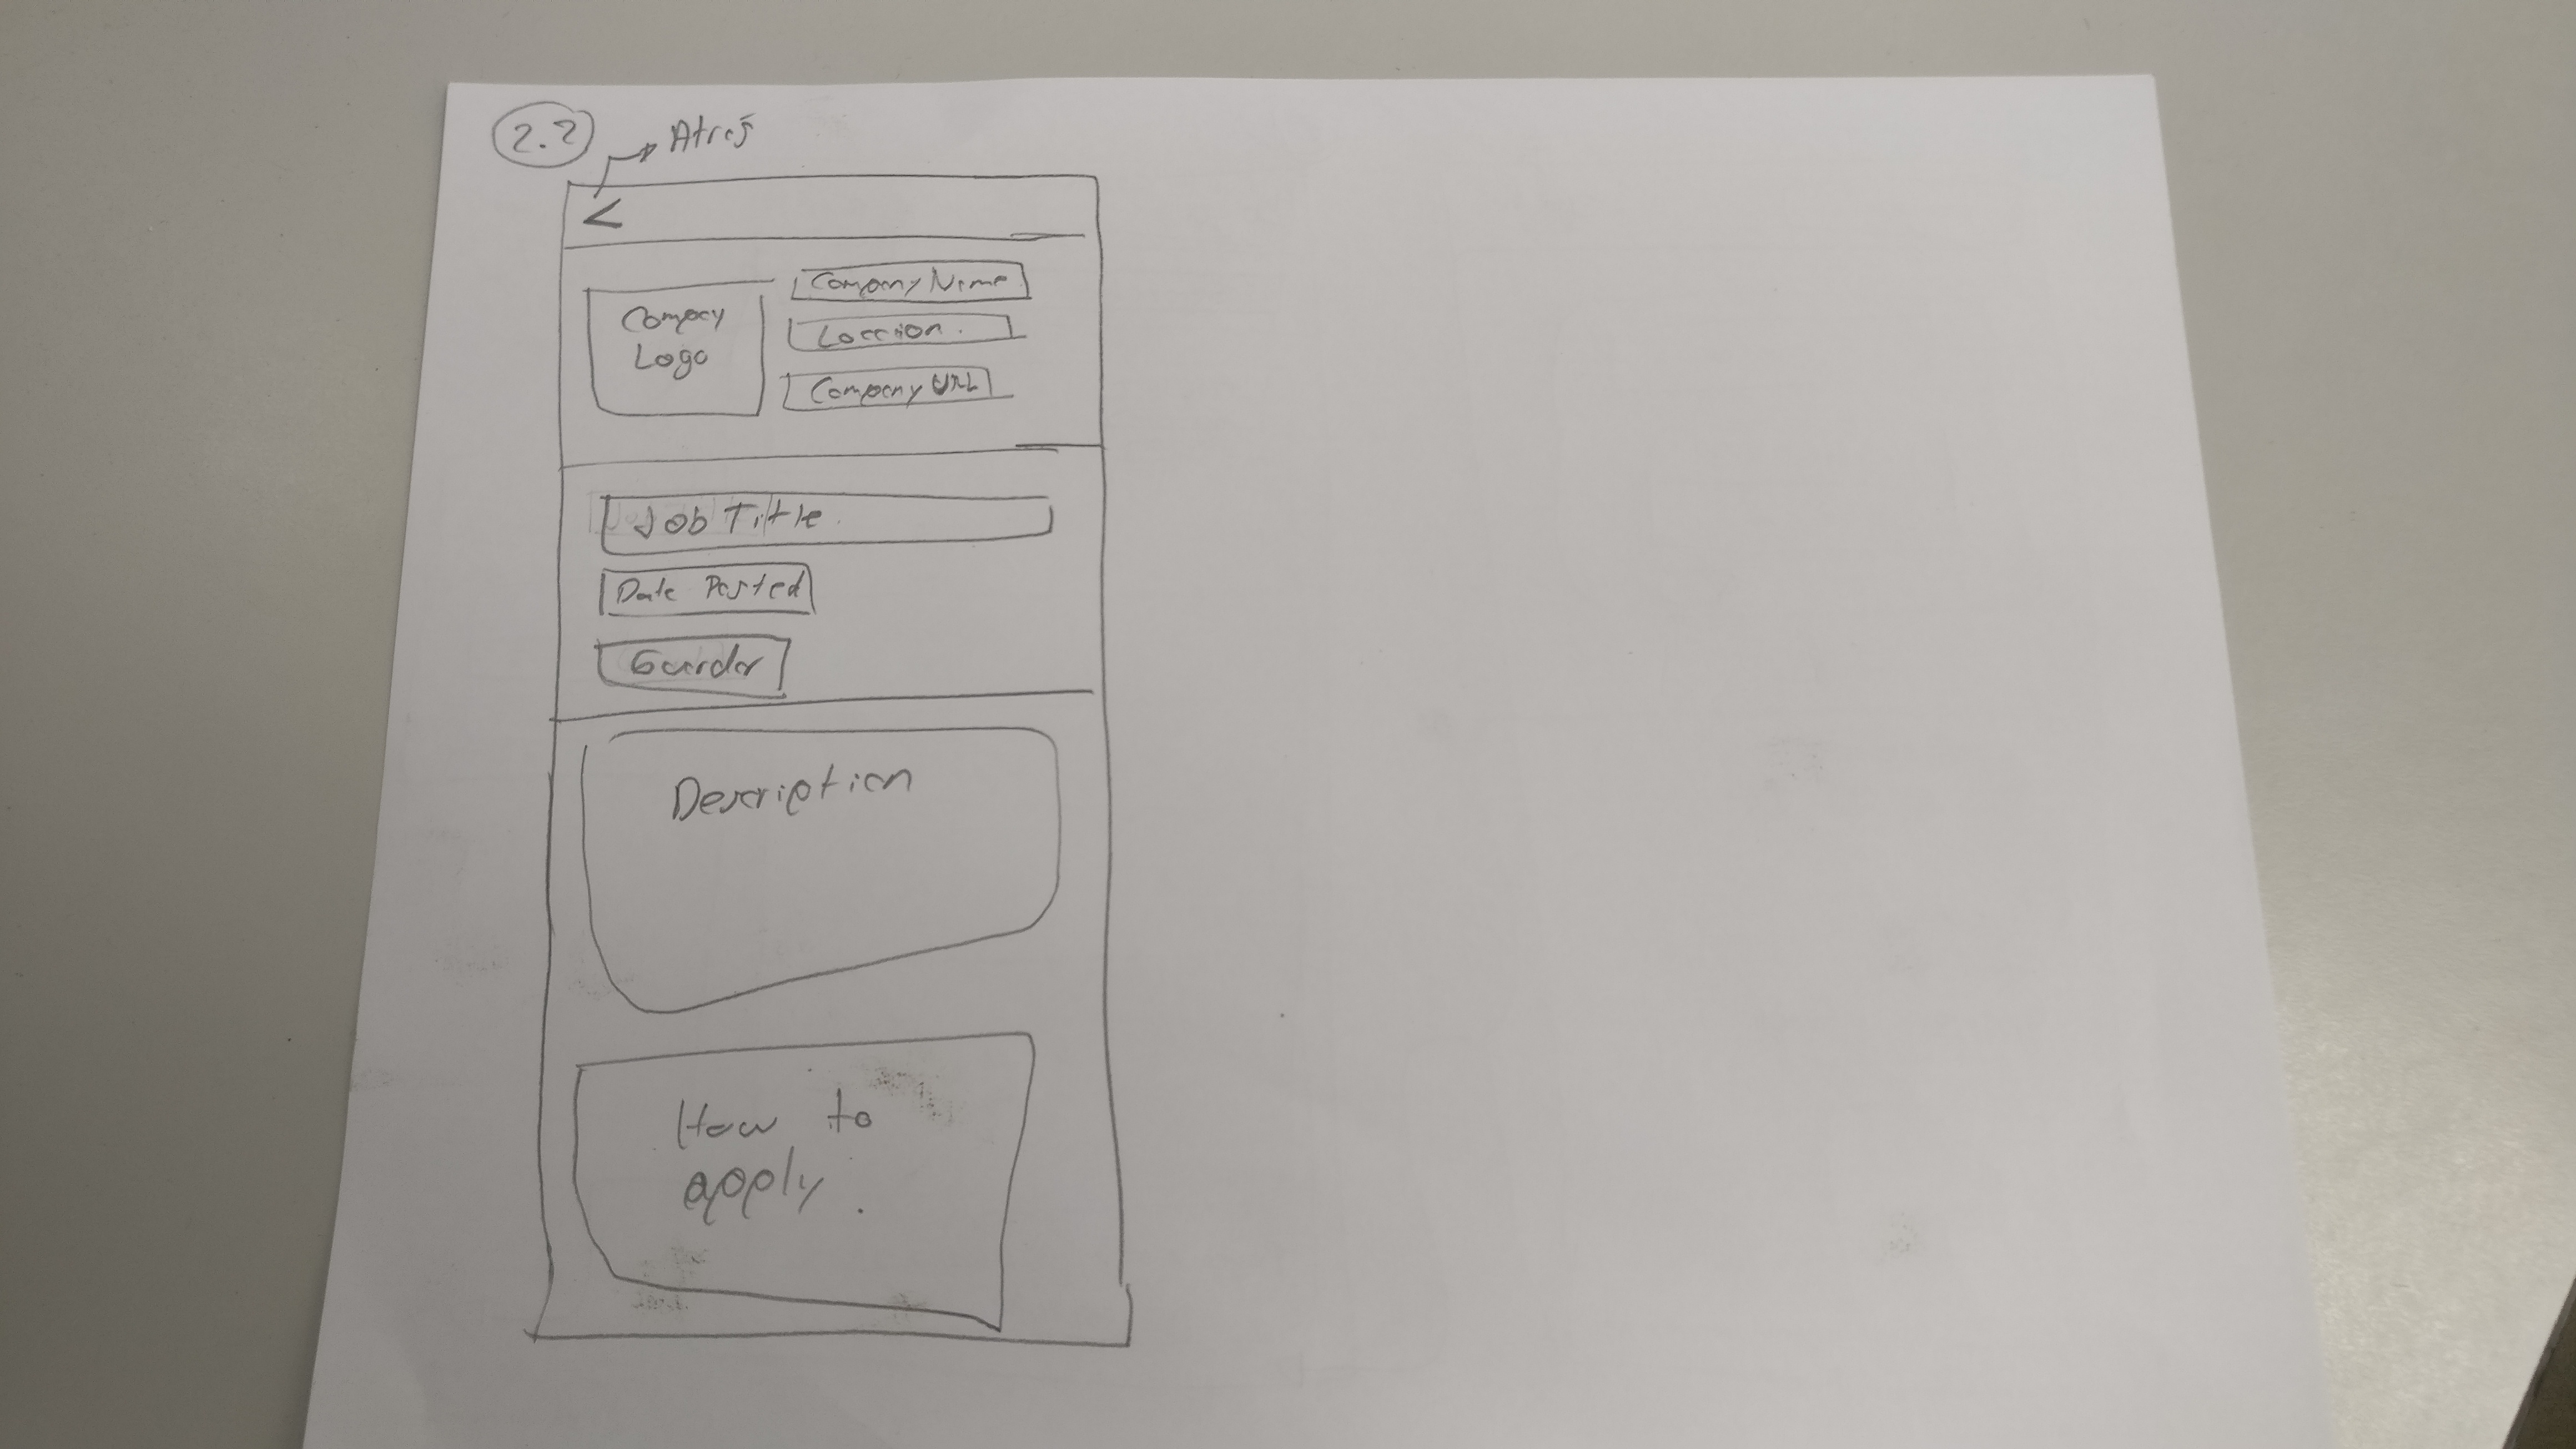 2.2
Atrás
<
Company Name
Compay
Logo
Location.
Company URL
Job Title
Date Posted
Guardar
Description
How to
apply.